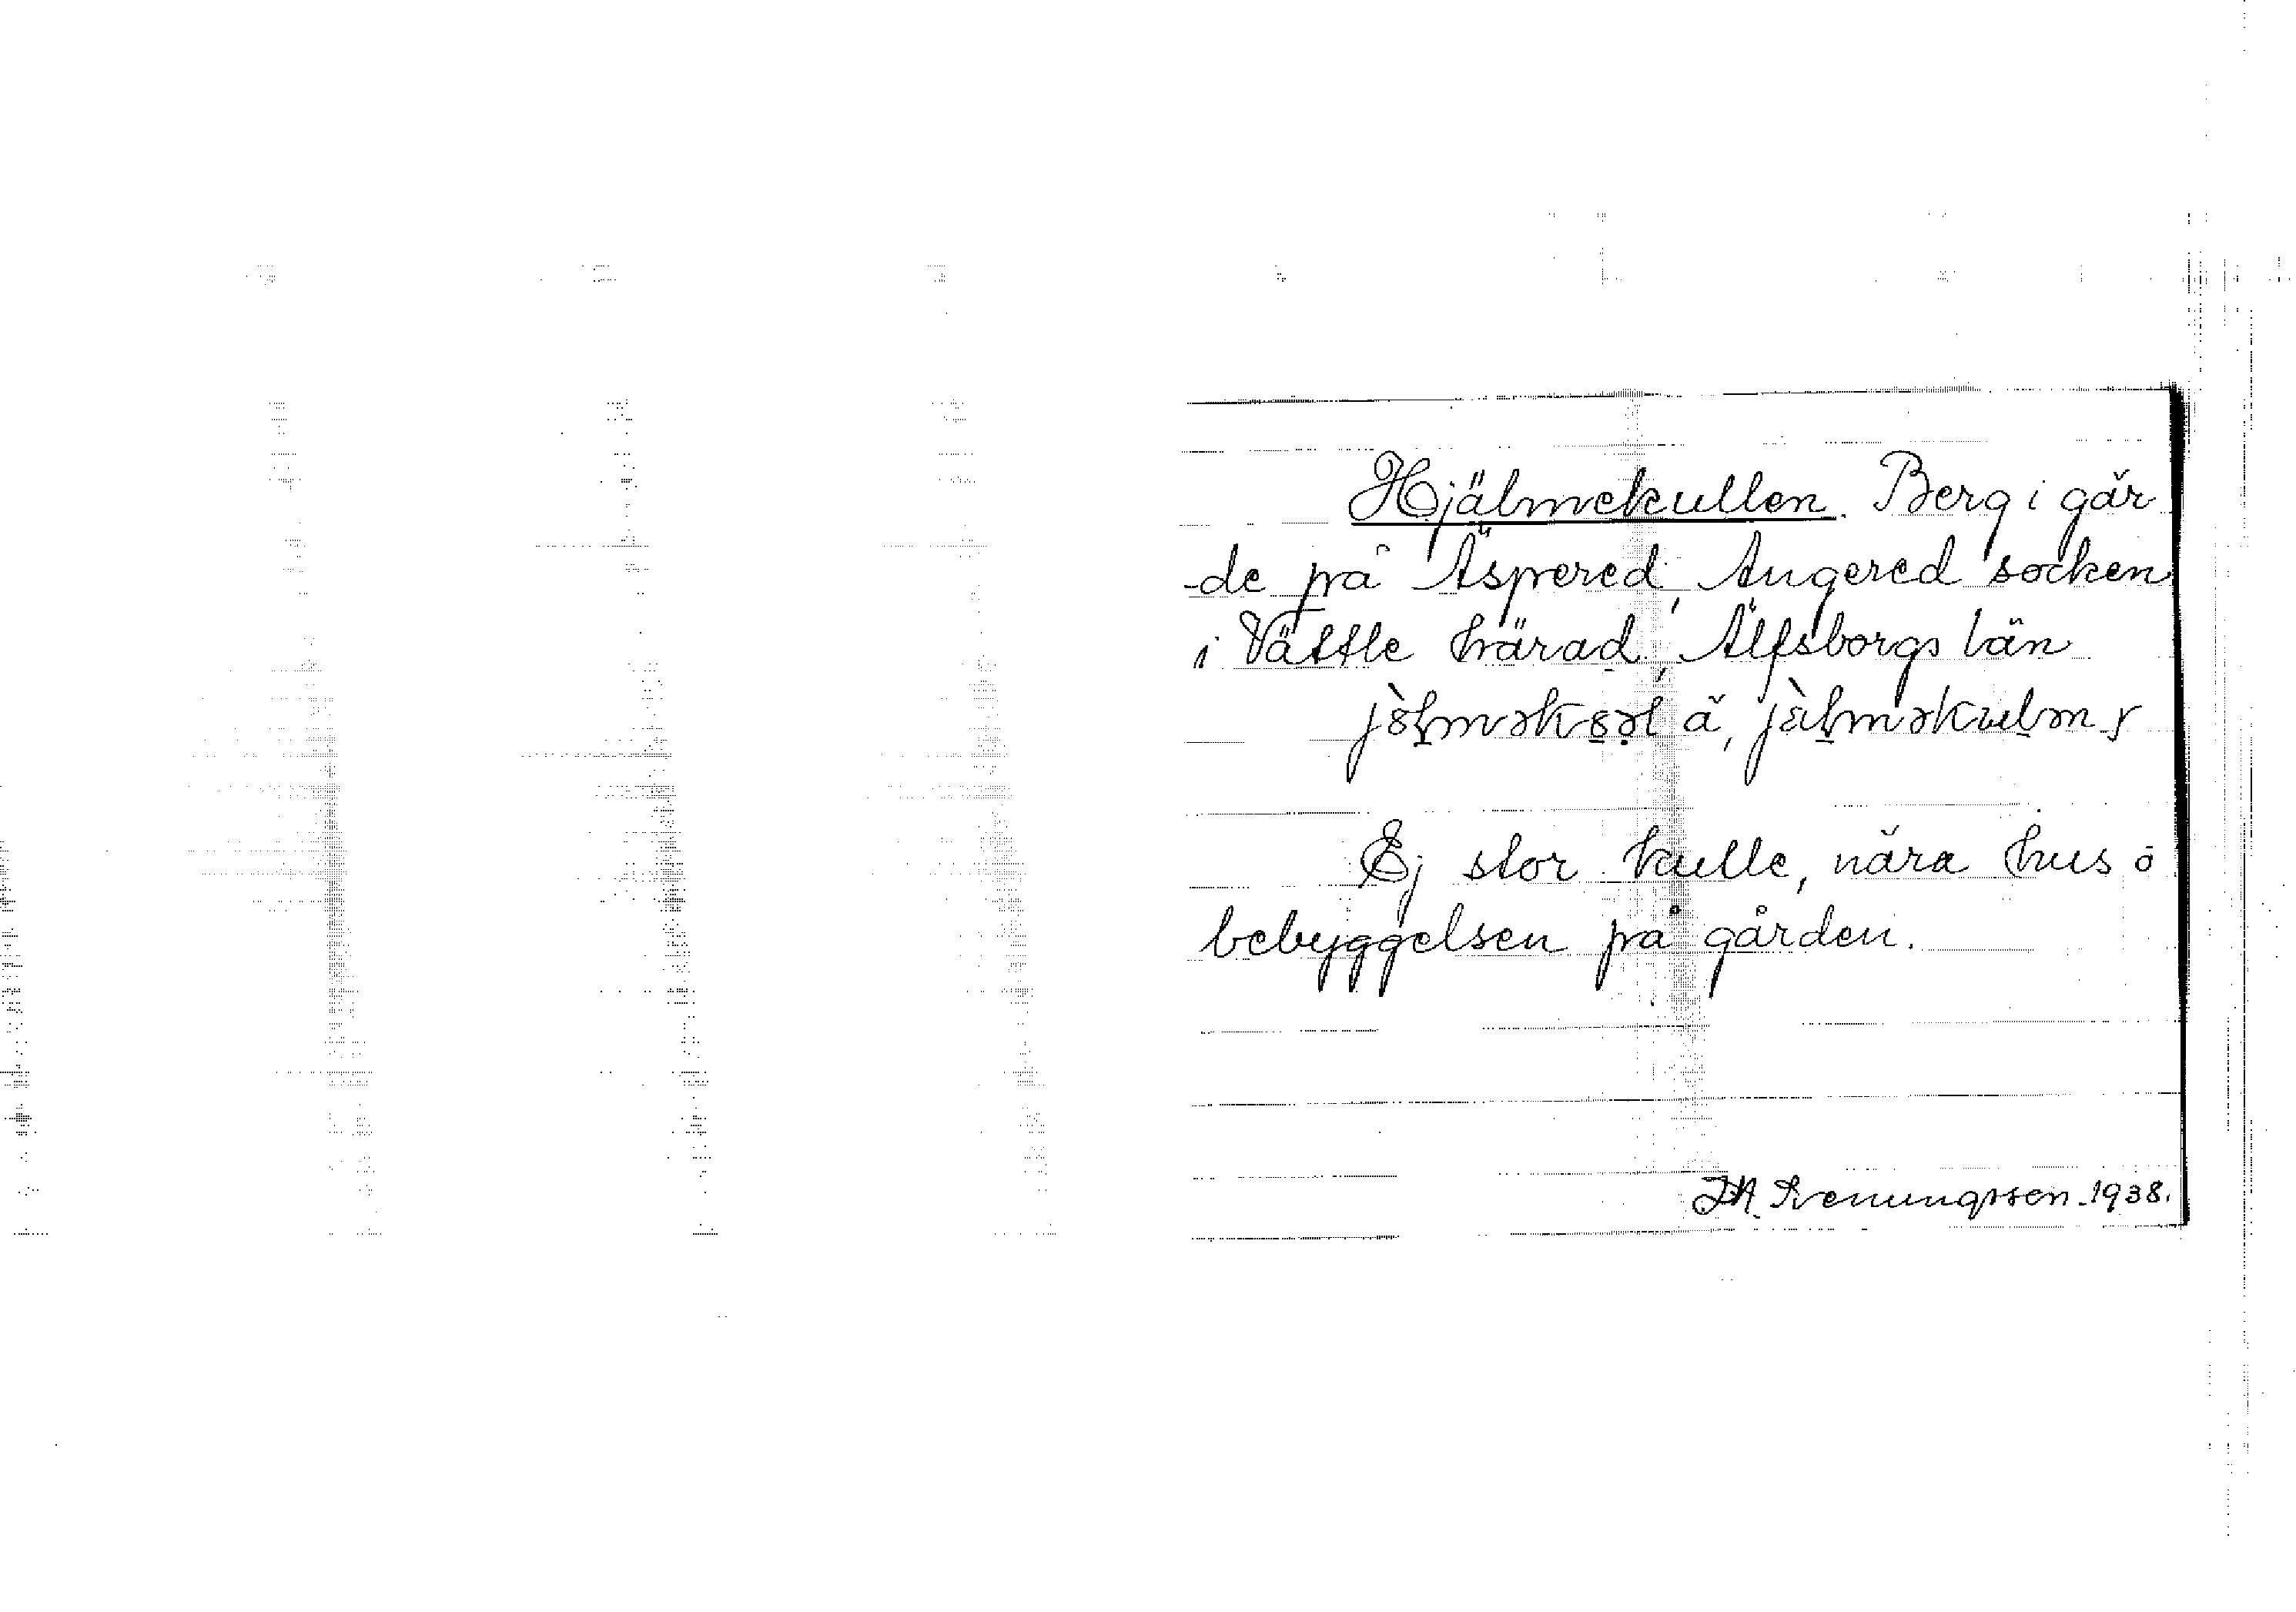 Hjälmekullen. Berg i går
-de på Äspered, Angered socken
i Vättle härad, Älfsborgs län
Ej stor kulle, nära hus ō
bebyggelsen på gården.
1938.